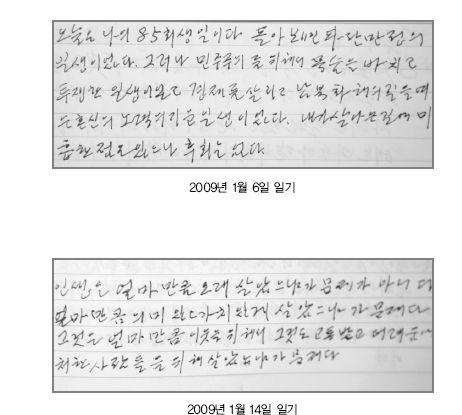 오늘은 나의 85회 생일이다. 돌아보면 파란만장의
일생이었다. 그러나 민주주의를 위해서 목숨을 바치고
투쟁한 일생이었고 경제를 살리고 남북화해의 길을 여
는 혼신의 노력을 기울인 일생이었다. 내가 살아온 길에 미
흡한 점은 있으나 후회는 없다.
2009년 1월 6일 일기
인생은 얼마만큼 오래 살았느냐가 문제가 아니다
얼마만큼 의미 있고 가치 있게 살았느냐가 문제다
그것은 얼마만큼 이웃을 위해서 그것도 고통받고 어려움에
처한 사람들을 위해 살았느냐가 문제다
2009년 1월 14일 일기